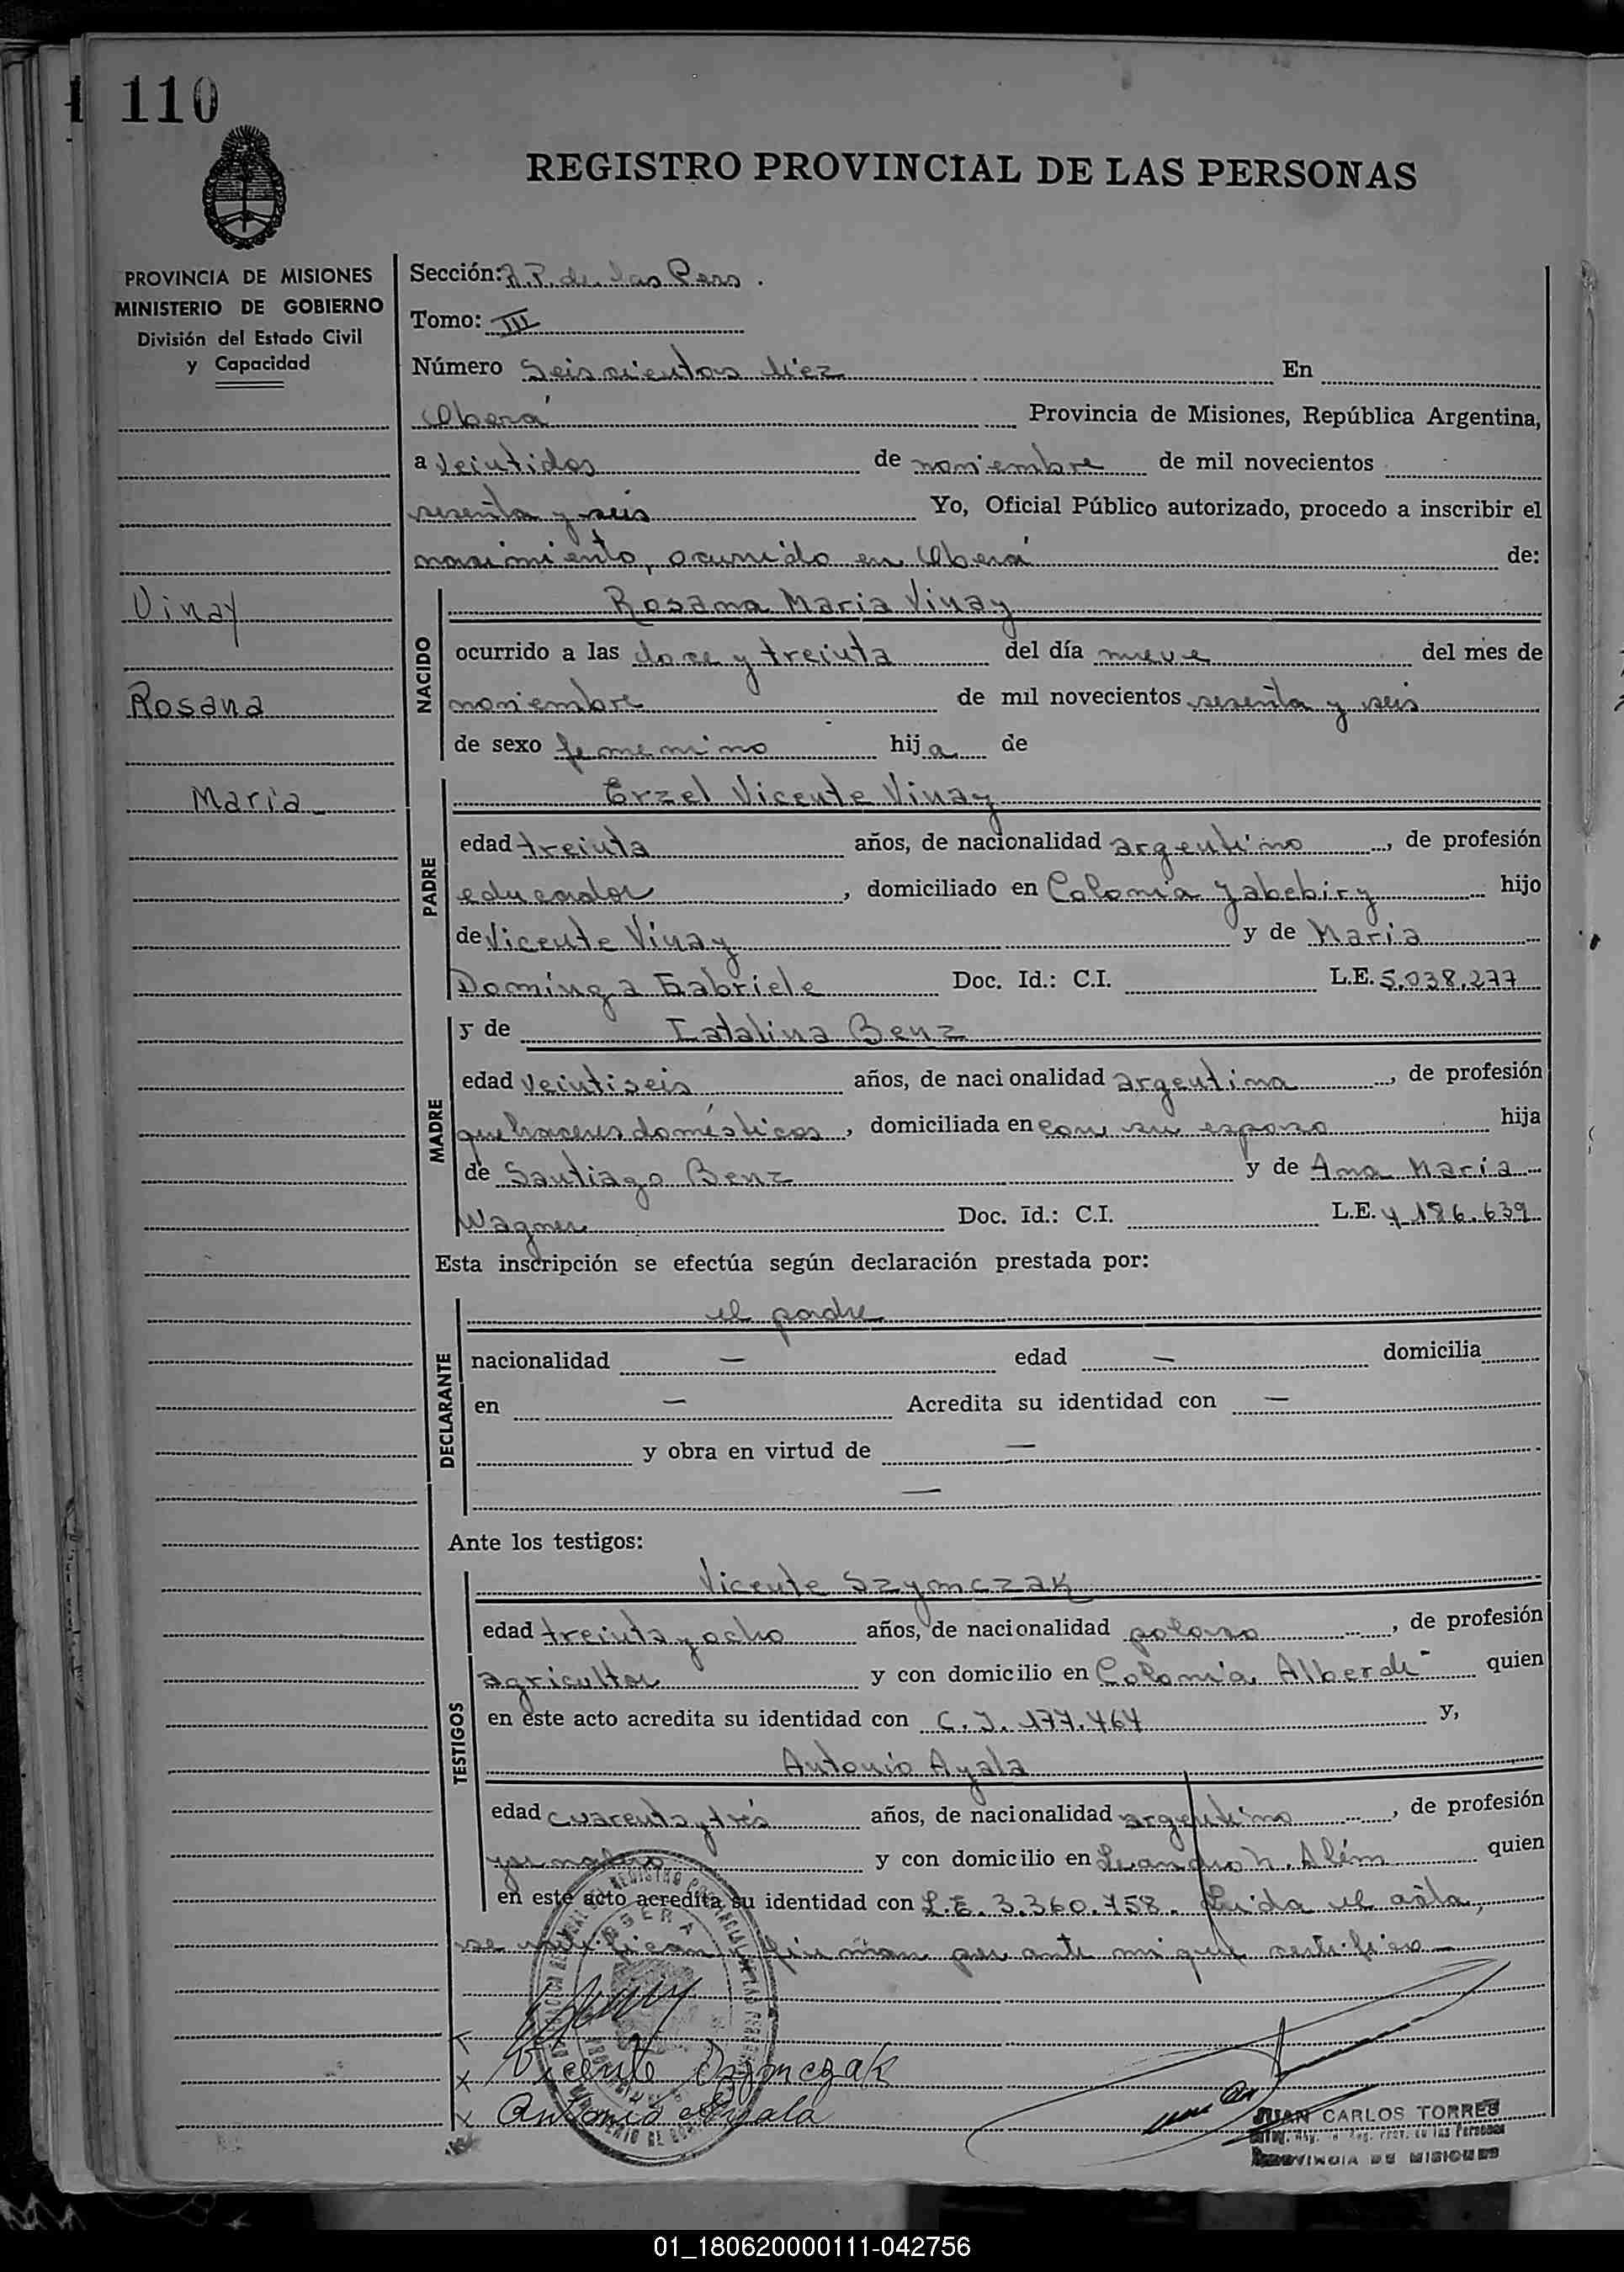 110
REGISTRO PROVINCIAL DE LAS PERSONAS
PROVINCIA DE MISIONES
MINISTERIO DE GOBIERNO
División del Estado Civil
y Capacidad
Vinay
Rosana
Maria
Sección: R.P. de las Pers.
Tomo: III
Número Seiscientos diez En
Oberá Provincia de Misiones, República Argentina,
a veintidos de noviembre de mil novecientos
sesenta y seis Yo, Oficial Público autorizado, procedo a inscribir el
nacimiento, ocurrido en Oberá de:
NACIDO
Rosana Maria Vinay
ocurrido a las doce y treinta del día nueve del mes de
noviembre de mil novecientos sesenta y seis
de sexo femenino hija de
PADRE
Erzel Vicente Vinay
edad treinta años, de nacionalidad argentino, de profesión
educador, domiciliado en Colonia Yabebiry hijo
de Vicente Vinay y de Maria
Dominga Gabriele Doc. Id.: C.I. L.E. 5.038.277
MADRE
y de Catalina Benz
edad veintiseis años, de nacionalidad argentina, de profesión
quehaceres domésticos, domiciliada en con su esposo hija
de Santiago Benz y de Ana Maria
Wagner Doc. Id.: C.I. L.E. 4.186.639
Esta inscripción se efectúa según declaración prestada por:
DECLARANTE
el padre
nacionalidad — edad — domicilia
en — Acredita su identidad con —
y obra en virtud de —
—
Ante los testigos:
TESTIGOS
Vicente Szymczak
edad treinta y ocho años, de nacionalidad polaco, de profesión
agricultor y con domicilio en Colonia Alberdi quien
en este acto acredita su identidad con C.I. 177.464 y,
Antonio Ayala
edad cuarenta y tres años, de nacionalidad argentino, de profesión
jornalero y con domicilio en Leandro N. Além quien
en este acto acredita su identidad con L.E. 3.360.758. Leida el acta,
se ratifican y firman por ante mi que certifico —
Vicente Szymczak
Antonio Ayala
JUAN CARLOS TORRES
PROVINCIA DE MISIONES
01_180620000111-042756